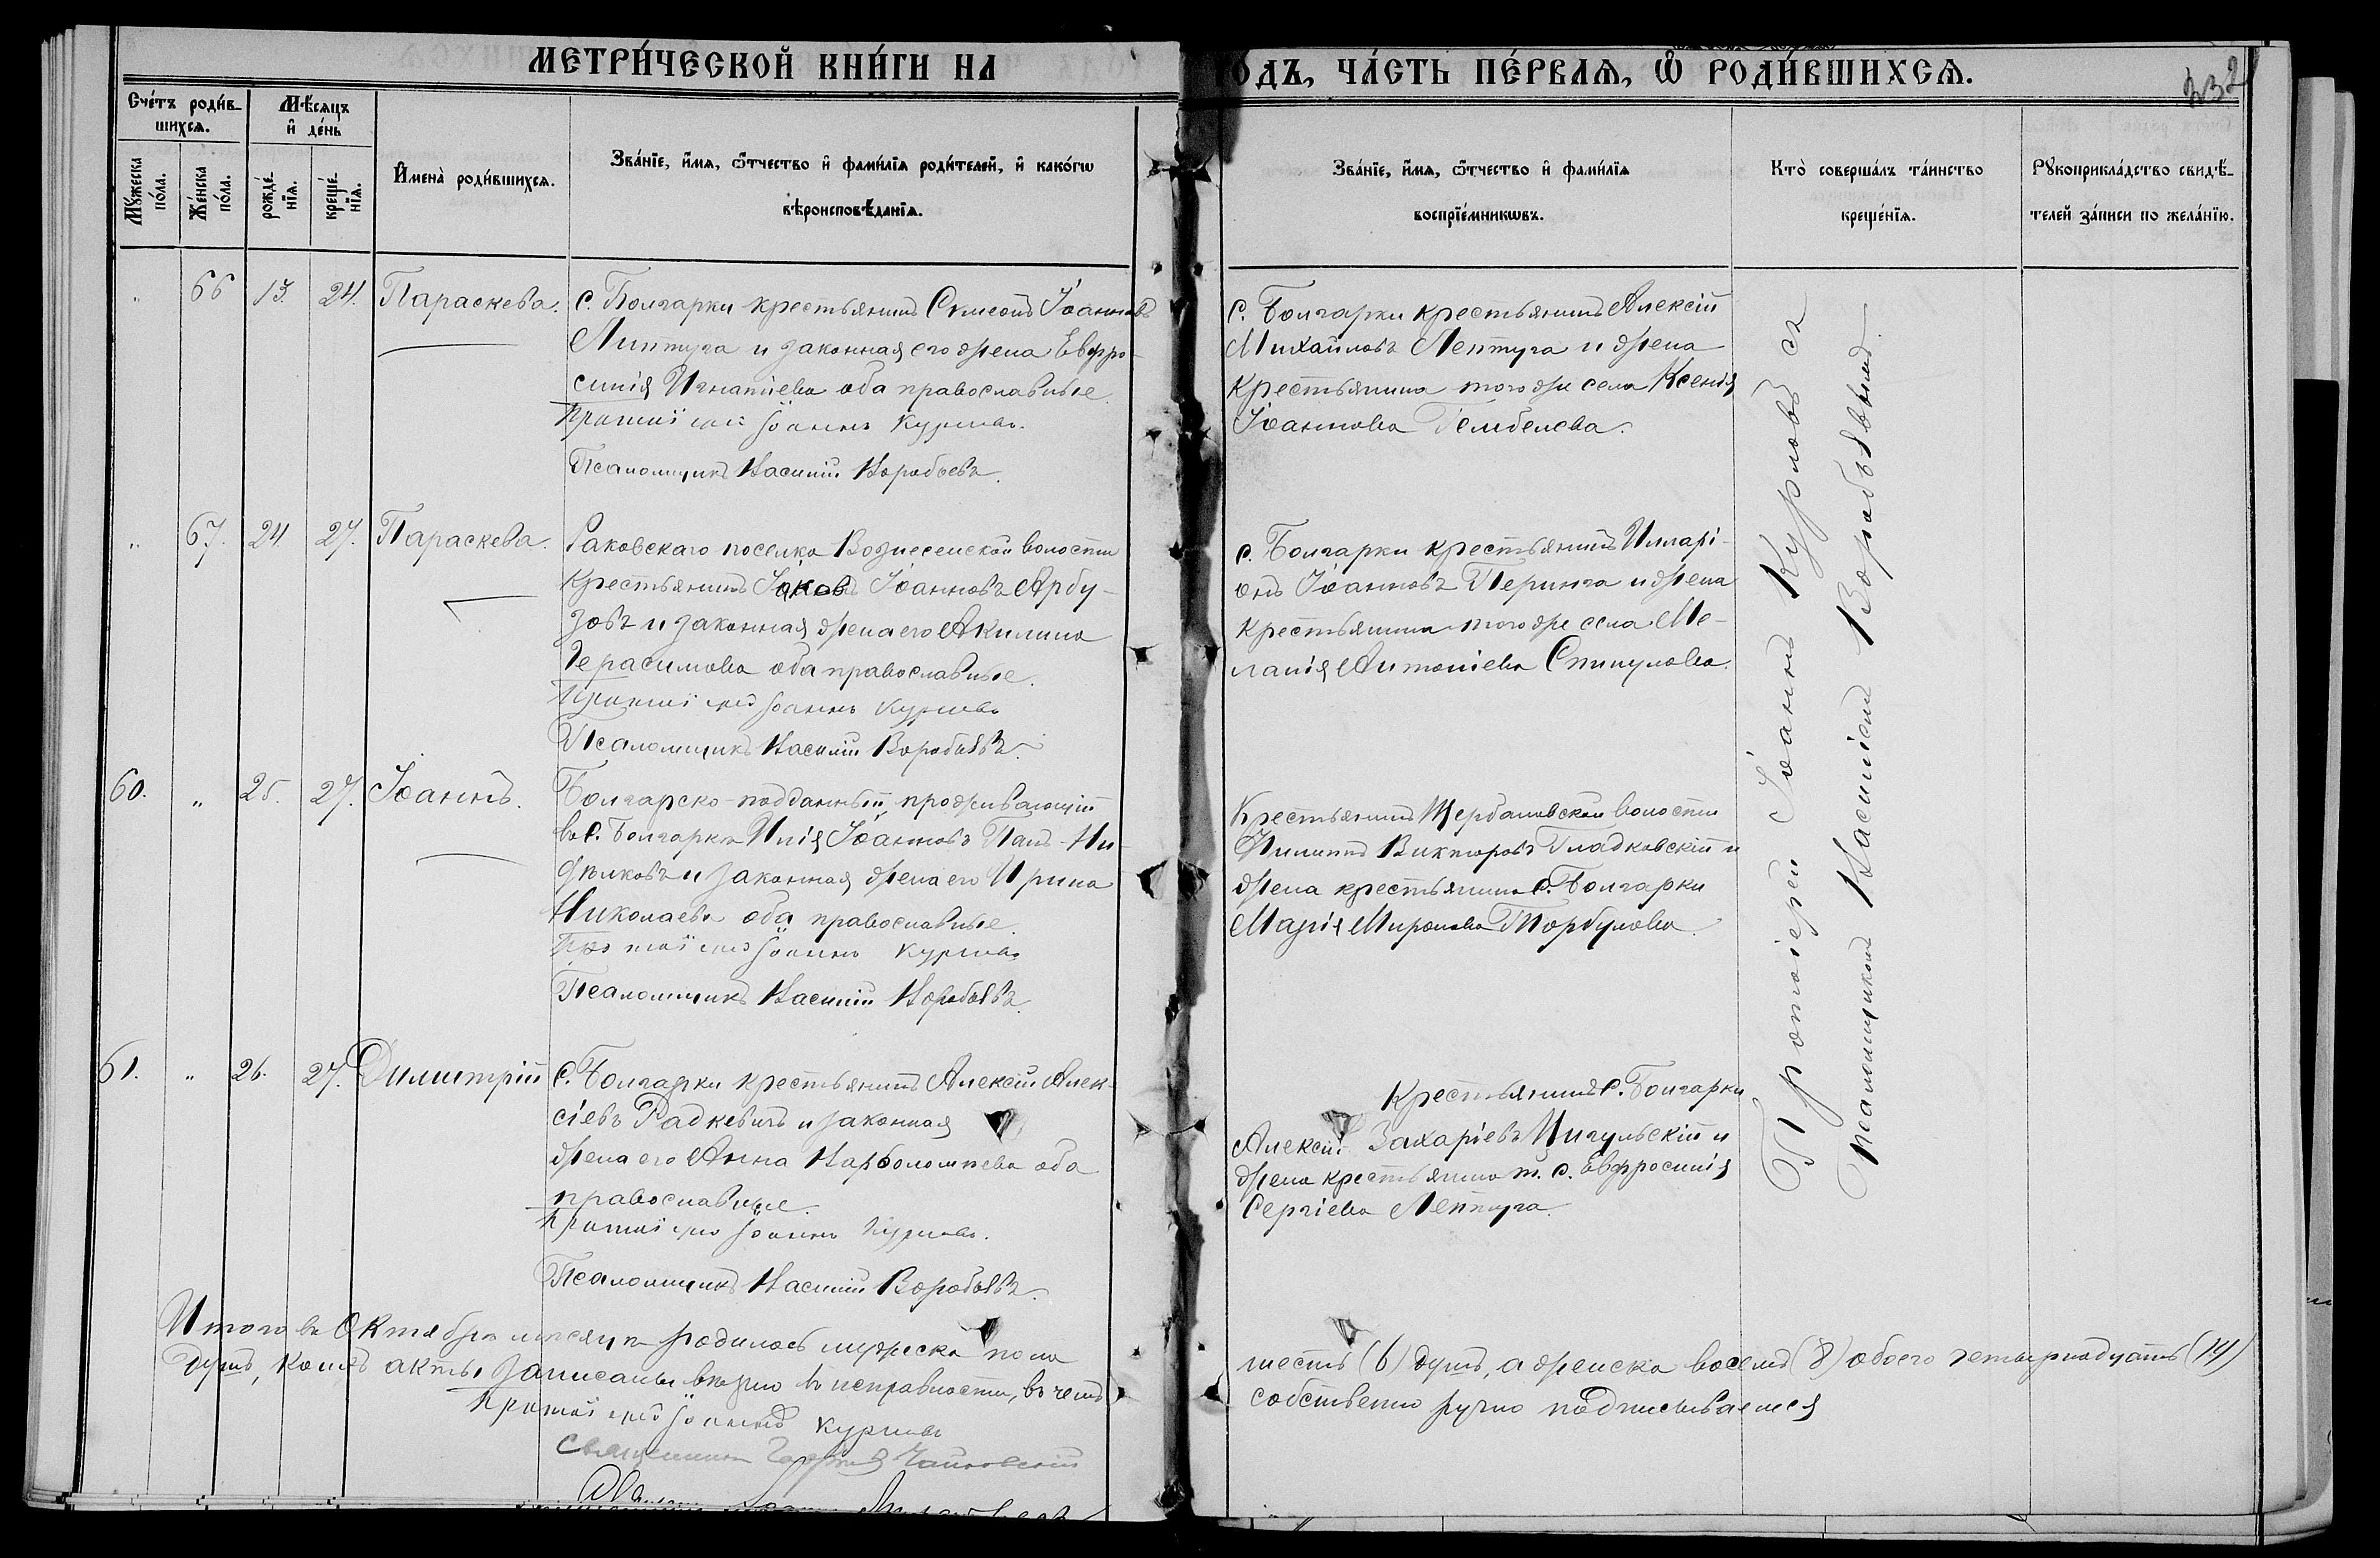 МЕТРИ́ЧЕСКОЙ КНИ́ГИ НА
ОДЪ, ЧА́СТЬ ПЕ́РВАѦ, Ѡ҆ РОДИ́ВШИХСѦ.
332
Сче́тъ роди́в-
шихсѧ.
Мѣ́сѧцъ
и҆ де́нь
Мꙋ́жеска
по́ла.
Же́нска
по́ла.
рожде́-
нїѧ.
креще́-
нїѧ.
И҆мена̀ роди́вшихсѧ.
Зва́нїе, и҆́мѧ, ѻ҆́тчество и҆ фами́лїѧ роди́телей, и҆ како́гѡ
вѣроисповѣ́данїѧ.
Зва́нїе, и҆́мѧ, ѻ҆́тчество и҆ фами́лїѧ
воспрїе́мникѡвъ.
Кто̀ соверша́лъ та́инство
креще́нїѧ.
Рꙋкоприкла́дство свидѣ́-
телей за́писи по жела́нїю.
„ 66 13. 24. Параскева.
с. Болгарки крестьянинъ Симеонъ Іоанновъ
Липтуга и законная его жена Евфро-
синія Игнатіева оба православные.
Протоіерей Іоаннъ Курловъ.
Псаломщикъ Василій Воробьевъ.
с. Болгарки крестьянинъ Алексій
Михайловъ Лептуга и жена
крестьянина того же села Ксенія
Іоаннова Гембелева.
„ 67. 24. 27. Параскева.
Раковскаго поселка Вознесенской волости
крестьянинъ Іаковъ Іоанновъ Арбу-
зовъ и законная жена его Акилина
Герасимова оба православные.
Протоіерей Іоаннъ Курловъ
Псаломщикъ Василій Воробьёвъ.
с. Болгарки крестьянинъ Иллари-
онъ Іоанновъ Перинга и жена
крестьянина того же села Ме-
ланія Антоніева Спинулова.
60. „ 25. 27. Іоаннъ.
Болгарско-подданный, проживающій
въ с. Болгаркѣ Илія Іоанновъ Панъ-Ни-
законная жена его Ирина
Николаева оба православные.
Протоіерей Іоаннъ Курловъ
Псаломщикъ Василій Воробьёвъ.
Крестьянинъ Щербановской волости
Филиппъ Викторовъ Гладковскій и
жена крестьянина с. Болгарки
Марія Миронова Торбулова.
61. „ 26. 27. Димитрій
с. Болгарки крестьянинъ Алексій Алек-
сіевъ Радкевичъ и законная
жена его Анна Варѳоломеева оба
православные.
Протоіерей Іоаннъ Курловъ.
Псаломщикъ Василій Воробьёвъ.
Крестьянинъ с. Болгарки
Алексій Захаріевъ Цигульскій и
жена крестьянина т. с. Евфросинія
Сергіева Лептуга.
Протоіерей Іоаннъ Курловъ съ
Псаломщикомъ Василіемъ Воробьёвымъ.
Итого въ Октябрѣ мѣсяцѣ родилось мужеска пола
шесть (6) душъ, а женска восемь (8) обоего четырнадцать (14)
душъ, коихъ акты записаны вѣрно въ исправности, въ чемъ
собственно ручно подписываемся
Протоіерей Іоаннъ Курловъ
Священникъ Чайковскій